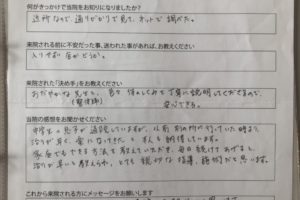 何がきっかけで当院をお知りになりましたか？
近所なので通りがかりで見て、ネットで調べた。
来院される前に不安だった事、迷われた事があれば、お教えください
入りやすい店かどうか。
来院された「決め手」をお教えください
おだやかな先生と、
丁寧に説明してくださるので、
安心できる。
当院の感想をお聞かせください
中学生の息子が通院していますが、以前別の所へ行っていた時より、
治りが早く、楽になってきたと本人も納得しています。
家庭でもできる方法も教えていただき、毎日続けてあげると
治りが早いと教えられ、とても親切な指導、施術だと思います。
これから来院される方にメッセージをお願いします